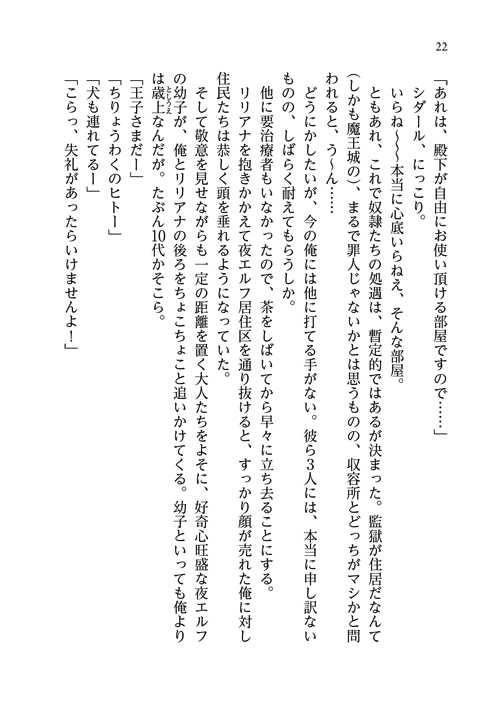 22
「あれは、殿下が自由にお使い頂ける部屋ですので……」
シダール、にっこり。
いらね～～～本当に心底いらねえ、そんな部屋。
ともあれ、これで奴隷たちの処遇は、暫定的ではあるが決まった。監獄が住居だなんて
(しかも魔王城の)、まるで罪人じゃないかとは思うものの、収容所とどっちがマシかと問
われると、う～ん……
どうにかしたいが、今の俺には他に打てる手がない。彼ら3人には、本当に申し訳ない
ものの、しばらく耐えてもらうしか。
他に要治療者もいなかったので、茶をしばいてから早々に立ち去ることにする。
リリアナを抱きかかえて夜エルフ居住区を通り抜けると、すっかり顔が売れた俺に対し
住民たちは恭しく頭を垂れるようになっていた。
そして敬意を見せながらも一定の距離を置く大人たちをよそに、好奇心旺盛な夜エルフ
の幼子が、俺とリリアナの後ろをちょこちょこと追いかけてくる。幼子といっても俺より
は歳上なんだが。たぶん10代かそこら。
としうえ
「王子さまだー」
「ちりょうわくのヒトー」
「犬も連れてるー」
「こらっ、失礼があったらいけませんよ！」